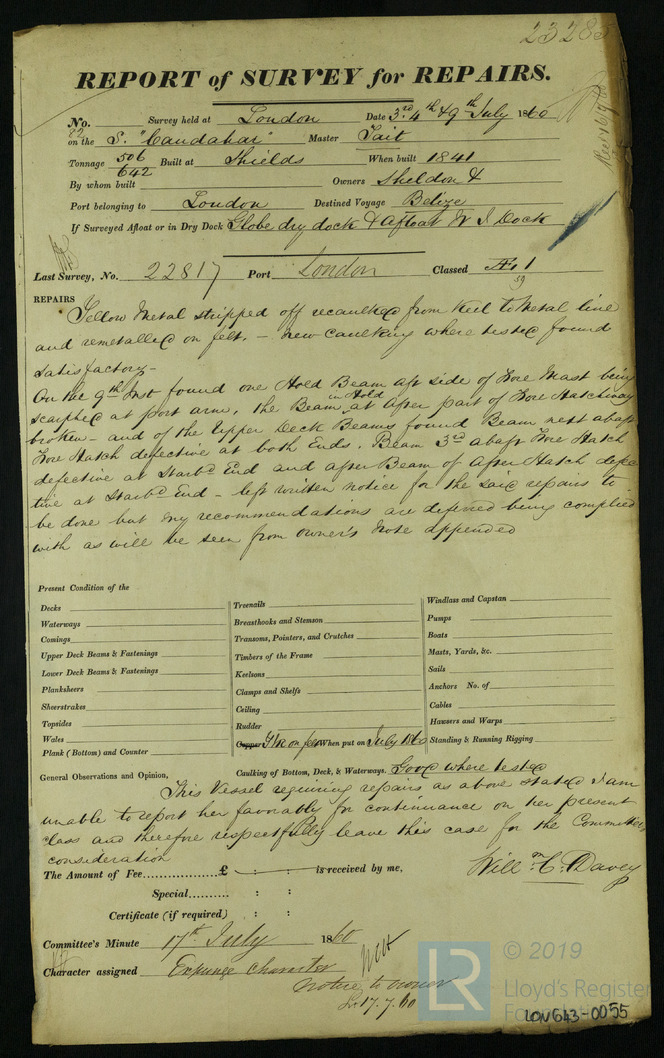 23285
REPORT of SURVEY for REPAIRS.
No. 82 Survey held at London Date 3rd 4th & 9th July 1860
on the S. "Candahar" Master Tait
Tonnage 506 642 Built at Shields When built 1841
By whom built Owners Sheldon &
Port belonging to London Destined Voyage Belize
If Surveyed Afloat or in Dry Dock Globe dry dock & afloat W I Dock
Last Survey, No. 22817 Port London Classed Æ 1
39
REPAIRS
Yellow Metal stripped off recaulked from Keel to Metal line
and remetalled on felt. – new caulking where tested found
satisfactory –
On the 9th Inst found one Hold Beam aft side of Fore Mast being
scarphed at port arm, the Beam in Hold at after part of Fore Hatchway
broken – and of the Upper Deck Beams found Beam next abaft
Fore Hatch defective at both Ends. Beam 3rd abaft Fore Hatch
defective at Starbd End and after Beam of After Hatch defec
tive at Starbd End – left written notice for the said repairs to
be done but my recommendations are deferred being complied
with as will be seen from owner's note appended
Present Condition of the
Decks
Waterways
Comings
Upper Deck Beams & Fastenings
Lower Deck Beams & Fastenings
Planksheers
Sheerstrakes
Topsides
Wales
Plank (Bottom) and Counter
Treenails
Breasthooks and Stemson
Transoms, Pointers, and Crutches
Timbers of the Frame
Keelsons
Clamps and Shelfs
Ceiling
Rudder
Copper Y M on felt When put on July 1860
Caulking of Bottom, Deck, & Waterways. Good where tested
Windlass and Capstan
Pumps
Boats
Masts, Yards, &c.
Sails
Anchors No. of
Cables
Hawsers and Warps
Standing & Running Rigging
General Observations and Opinion,
This Vessel requiring repairs as above stated I am
unable to report her favorably for continuance on her present
class and therefore respectfully leave this case for the Committee's
consideration
Willm C. Davey
The Amount of Fee £ : : is received by me,
Special : :
Certificate (if required) : :
Committee's Minute 17th July 1860
Character assigned Expunge character
Notice to owner
17.7.60
LR © 2019
Lloyd's Register
Foundation
LON643-0055